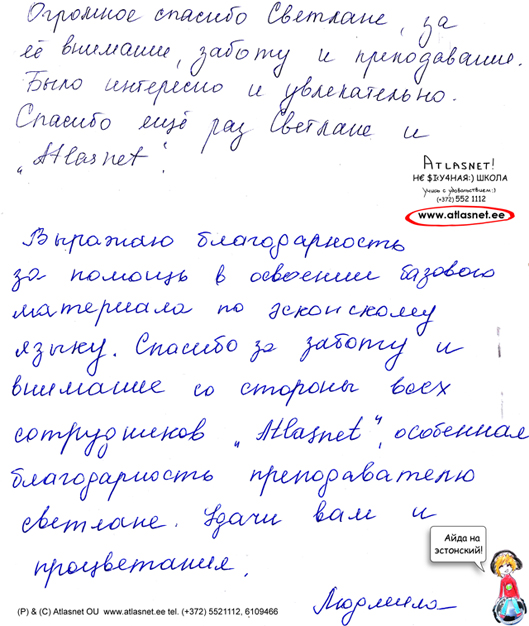 Огромное спасибо Светлане, за
её внимание, заботу и преподавание.
Было интересно и увлекательно.
Спасибо ещё раз Светлане и
„Atlasnet“.
ATLASNET!
НЕ $ЕУ4НАЯ:) ШКОЛА
Учись с удовольствием:)
(+372) 552 1112
www.atlasnet.ee
Выражаю благодарность
за помощь в освоении базового
материала по эстонскому
языку. Спасибо за заботу и
внимание со стороны всех
сотрудников „Atlasnet“, особенная
благодарность преподавателю
светлане. Удачи вам и
процветания.
Айда на
эстонский!
Людмила
(P) & (C) Atlasnet OU www.atlasnet.ee tel. (+372) 5521112, 6109466